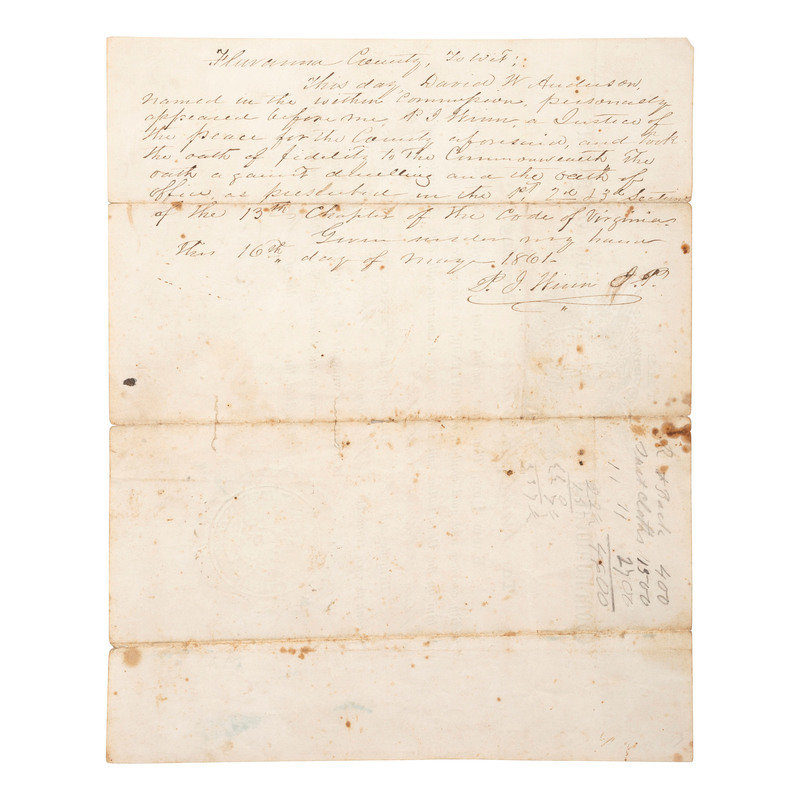 Fluvanna County, To Wit;
This day David W Anderson
named in the within commission, personally
appeared before me P J Winn, a Justice of
the peace for the County aforesaid, and took
the oath of fidelity to the Commonwealth, the
oath against duelling and the oath of
office as prescribed in the 1st 2d & 3d Section
of the 13th Chapter of the Code of Virginia
Given under my hand
this 16th day of May 1861.
P. J. Winn J.P.
400
cloths 1500
11 11 2700
4600